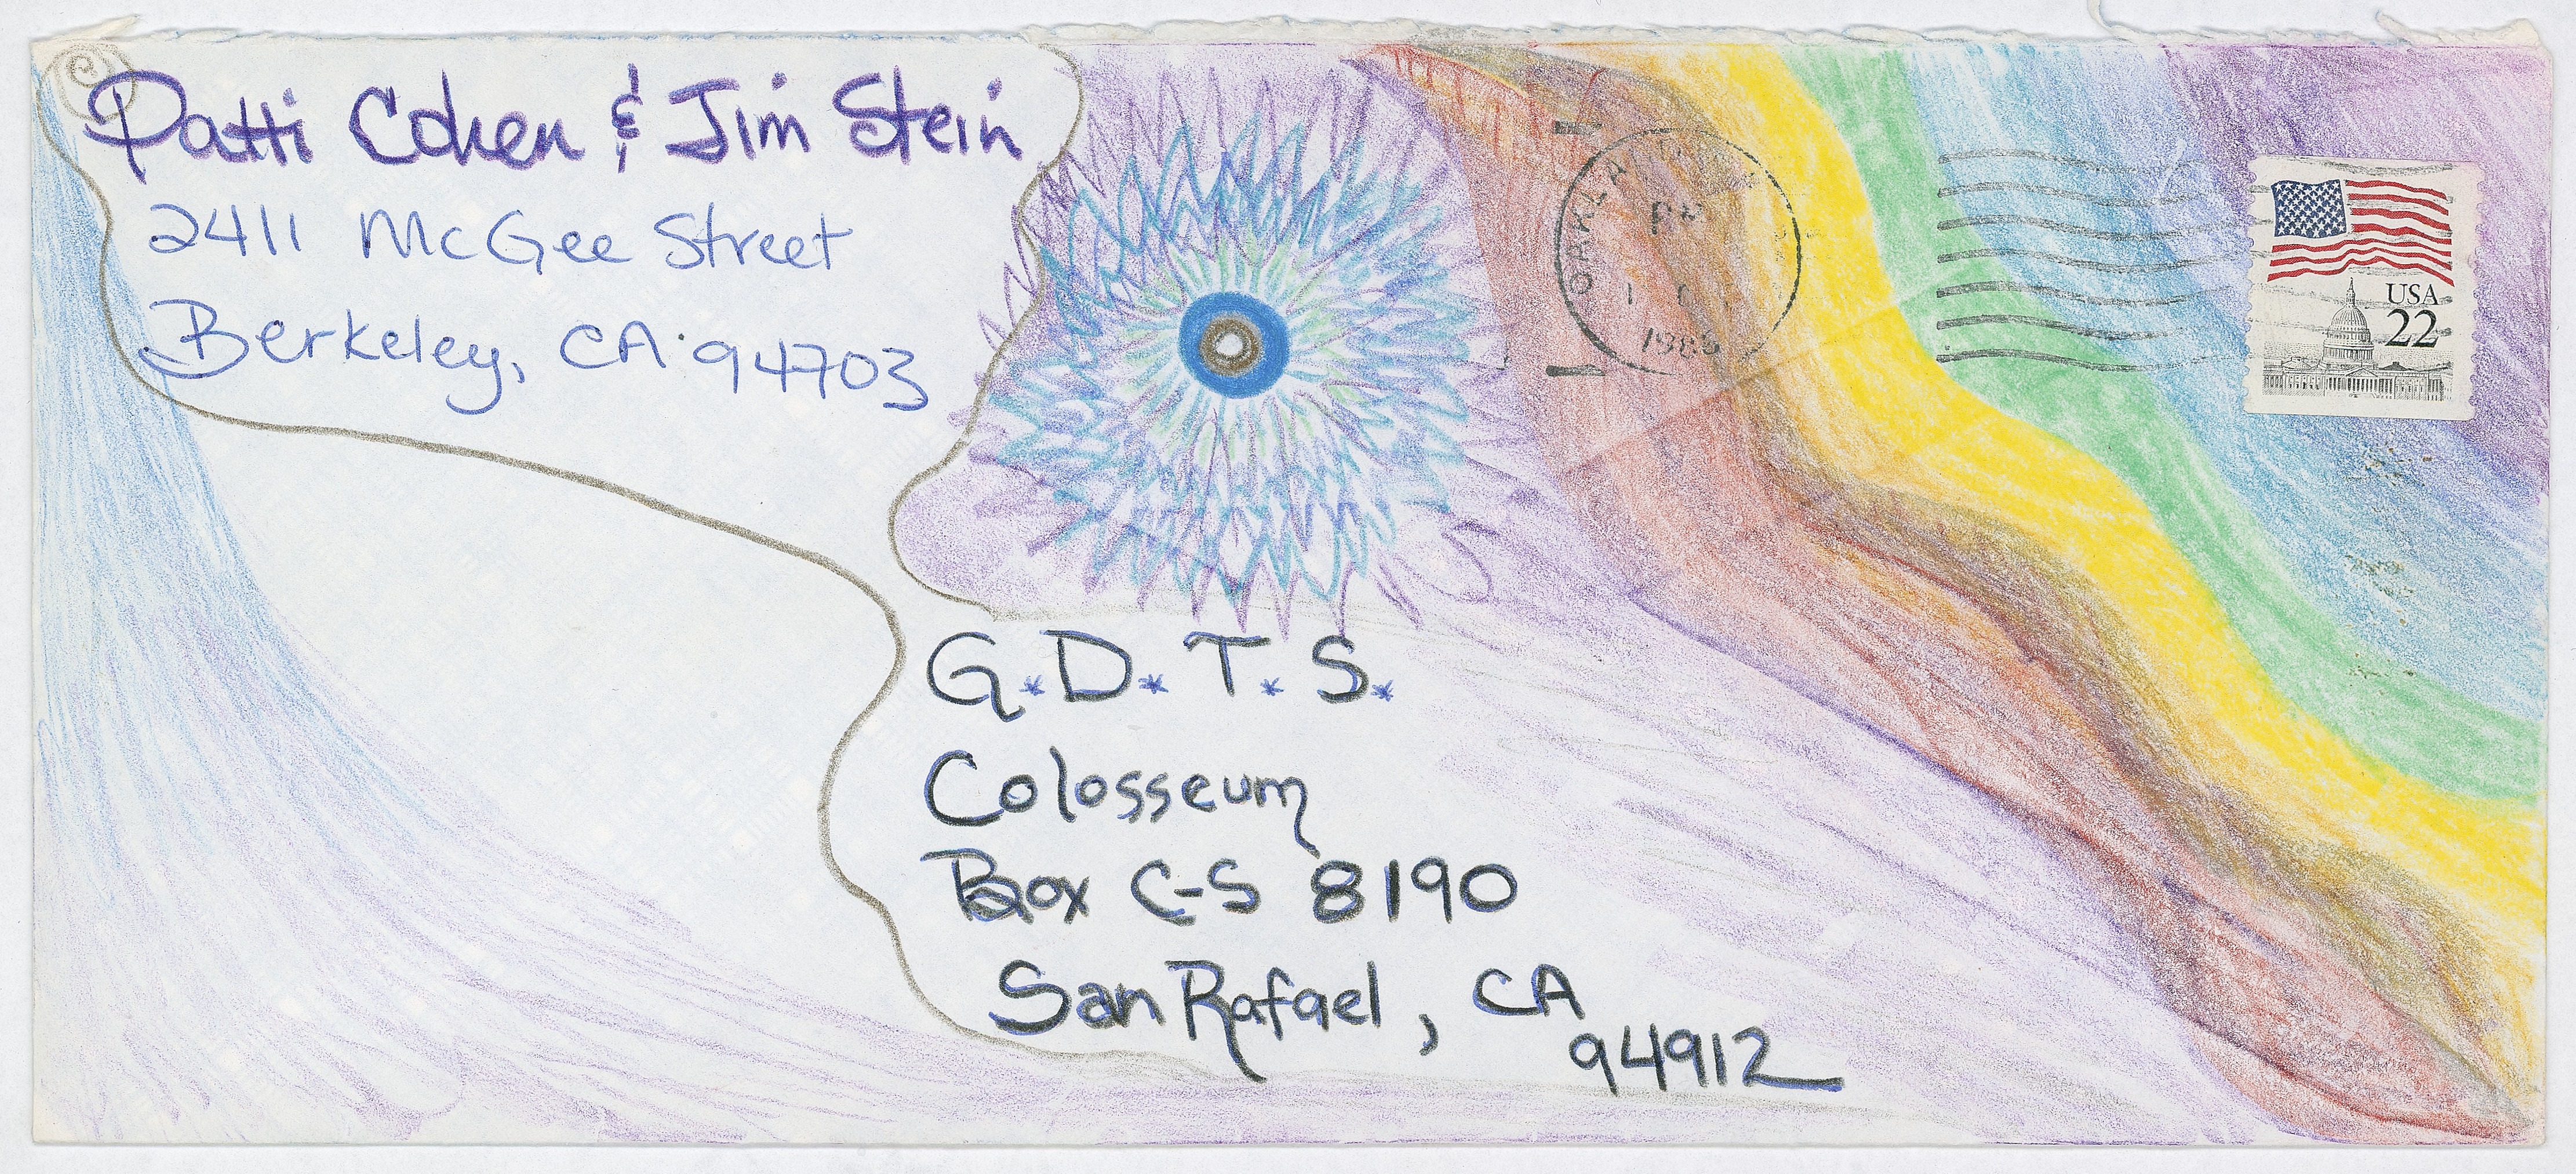 Patti Cohen & Jim Stein
2411 McGee Street
Berkeley, CA. 94703
OAKLA
PM
USA
22
G.D.T.S.
Colosseum
Box C-S 8190
San Rafael, CA
94912